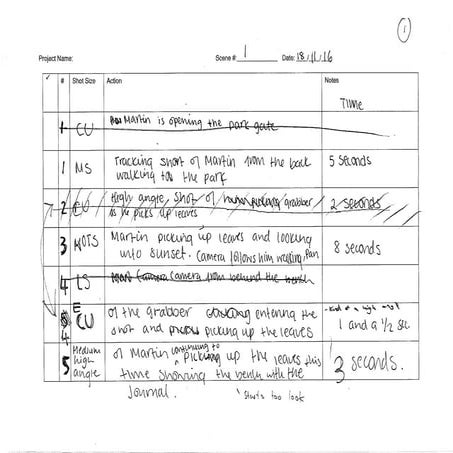 1
Project Name: Scene # 1 Date: 18/11/16
✓ # Shot Size Action Notes
TIME
1 CU Martin is opening the park gate
1 MS Tracking shot of Martin from the back 5 seconds
walking to the park
2 CU High angle shot of grabber 2 seconds
as he picks up leaves
3 MOTS Martin picking up leaves and looking 8 seconds
into sunset. Camera follows him walking, Pan
4 LS Camera from behind the bench
5 ECU of the grabber entering the - kind of a high angle
4 shot and picking up the leaves 1 and a 1/2 sec
5 Medium high angle of Martin continuing to picking up the leaves this 3 seconds.
time showing the bench with the
Journal. 'Starts too look